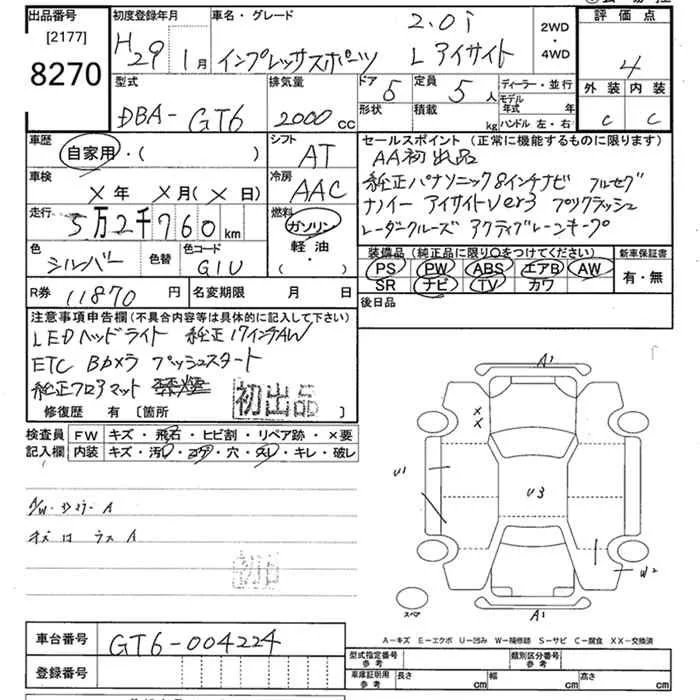 出品番号
[2177]
8270
初度登録年月
H29 1月
車名・グレード
インプレッサスポーツ
2.0i
L アイサイト
2WD
・
4WD
評価点
4
外装 内装
C C
型式
DBA- GT6
排気量
2000 cc
ドア 5
定員 5 人
形状
積載 kg
ディーラー・並行
モデル年式 年
ハンドル 左・右
車歴
自家用・( )
シフト
AT
セールスポイント (正常に機能するものに限ります)
AA初出品
純正パナソニック8インチナビ フルセグ
ナノイー アイサイトver3 プリクラッシュ
レーダークルーズ アクティブレーンキープ
車検
×年 ×月(×日)
冷房
AAC
走行
5万2千760km
燃料
ガソリン
軽油
( )
色
シルバー
色替
色コード
G1U
装備品 (純正品に限り○をつけてください)
PS PW ABS エアB AW
SR ナビ TV カワ
新車保証書
有・無
R券 11870円
名変期限 月 日
後日品
注意事項申告欄(不具合内容等は具体的に記入して下さい)
LEDヘッドライト 純正17インチAW
ETC Bカメラ プッシュスタート
純正フロアマット
初出品
修復歴 有 〔箇所 〕
検査員
記入欄
FW キズ・飛石・ヒビ割・リペア跡・×要
内装 キズ・汚レ・コゲ・穴・スレ・キレ・破レ
A1
×
×
U1
U3
W2
スペア
A1
A-キズ E-エクボ U-凹み W-補修跡 S-サビ C-腐食 XX-交換済
車台番号 GT6-004224
登録番号
型式指定番号
参考
類別区分番号
参考
車庫証明用
参考
長さ cm 幅 cm 高さ cm